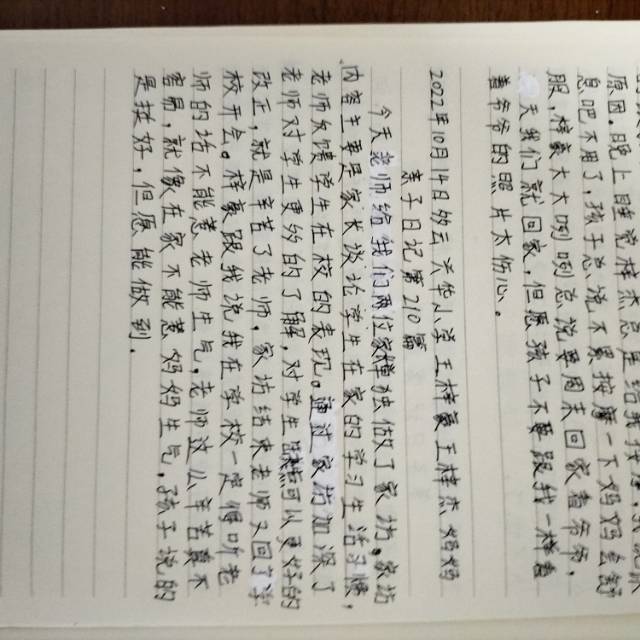 原因。晚上睡觉梓杰总是给我
息吧不用了,孩子总说不累按摩一下妈妈会舒
服,梓豪大大咧咧总说要周末回家看爷爷,
天我们就回家,但愿孩子不要跟我一样看
着爷爷的照片太伤心。
2022年10月14日多云 小学王梓豪王梓杰妈妈
亲子日记第210篇
今天老师给我们两位家单独做了家访。家访
内容主要是家长谈论学生在家的学习生活习惯,
老师反馈学生在校的表现。通过家访加深了
老师对学生更多的了解,对学生可以更好的
改正,就是辛苦了老师,家访结束老师又回了学
校开会。梓豪跟我说我在学校一定懂听老
师的话不能惹老师生气,老师这么辛苦真不
容易,就像在家不能惹妈妈生气,孩子说的
是挺好,但愿能做到.